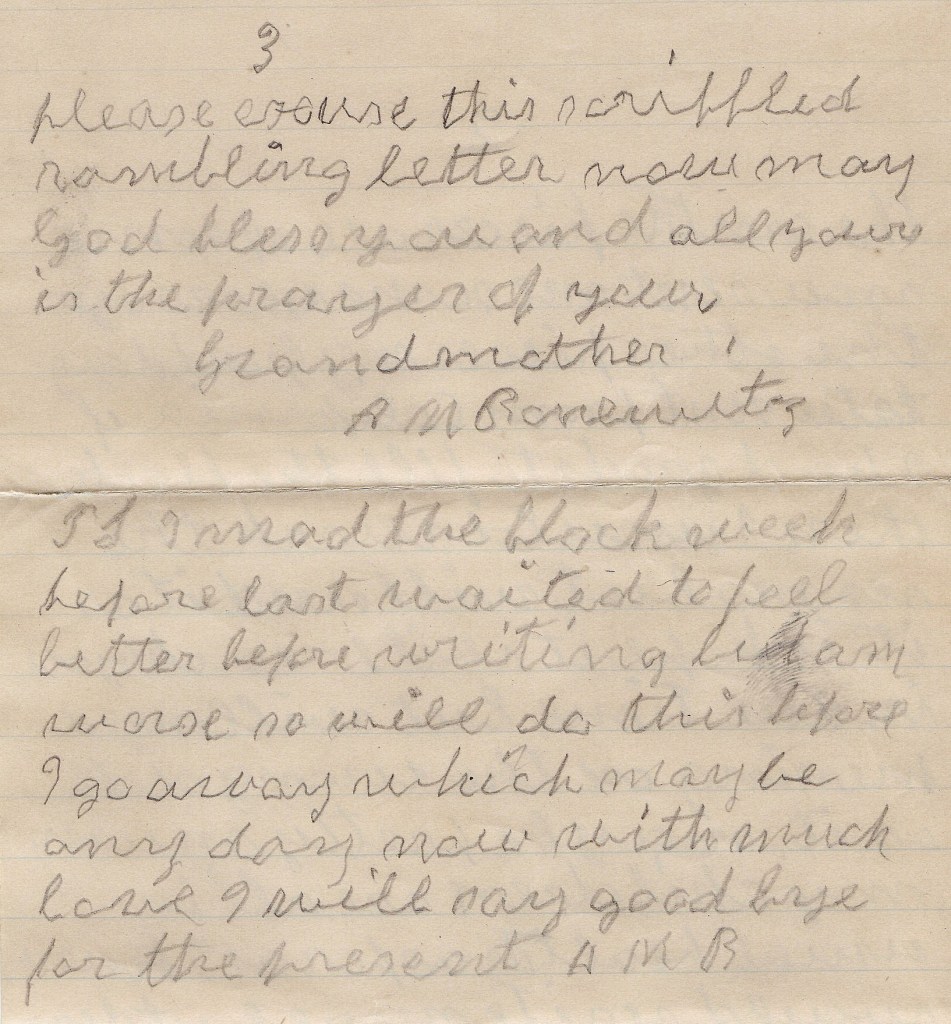 3
please excuse this scriffled
rambling letter now may
God bless you and all yours
is the prayer of your
Grandmother
A M Bonewitz
PS I mad the block week
before last waited to feel
better before writing but am
worse so will do this before
I go away which may be
any day now with much
love I will say good bye
for the present A M B